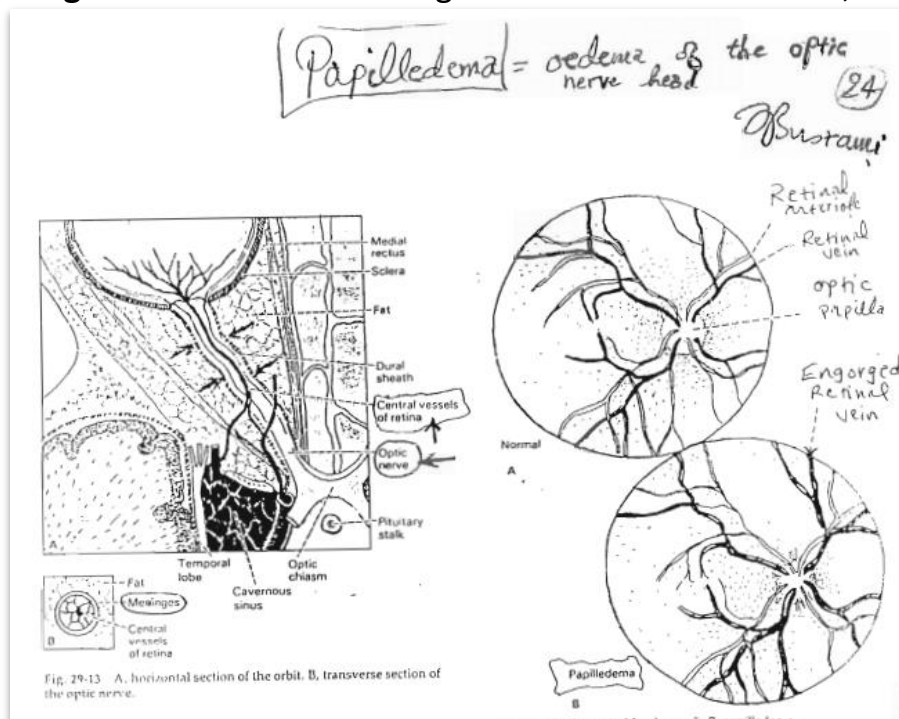 Papilledema = oedema of the optic
nerve head
24
Bustami
Medial
rectus
Sclera
Fat
Dural
sheath
Central vessels
of retina
Optic
nerve
Pituitary
stalk
Temporal
lobe
Cavernous
sinus
Optic
chiasm
A
Fat
Meninges
Central
vessels
of retina
B
Fig. 29-13 A, horizontal section of the orbit. B, transverse section of
the optic nerve.
Retinal
Arteriole
Retinal
vein
optic
papilla
Engorged
Retinal
vein
Normal
A
Papilledema
B